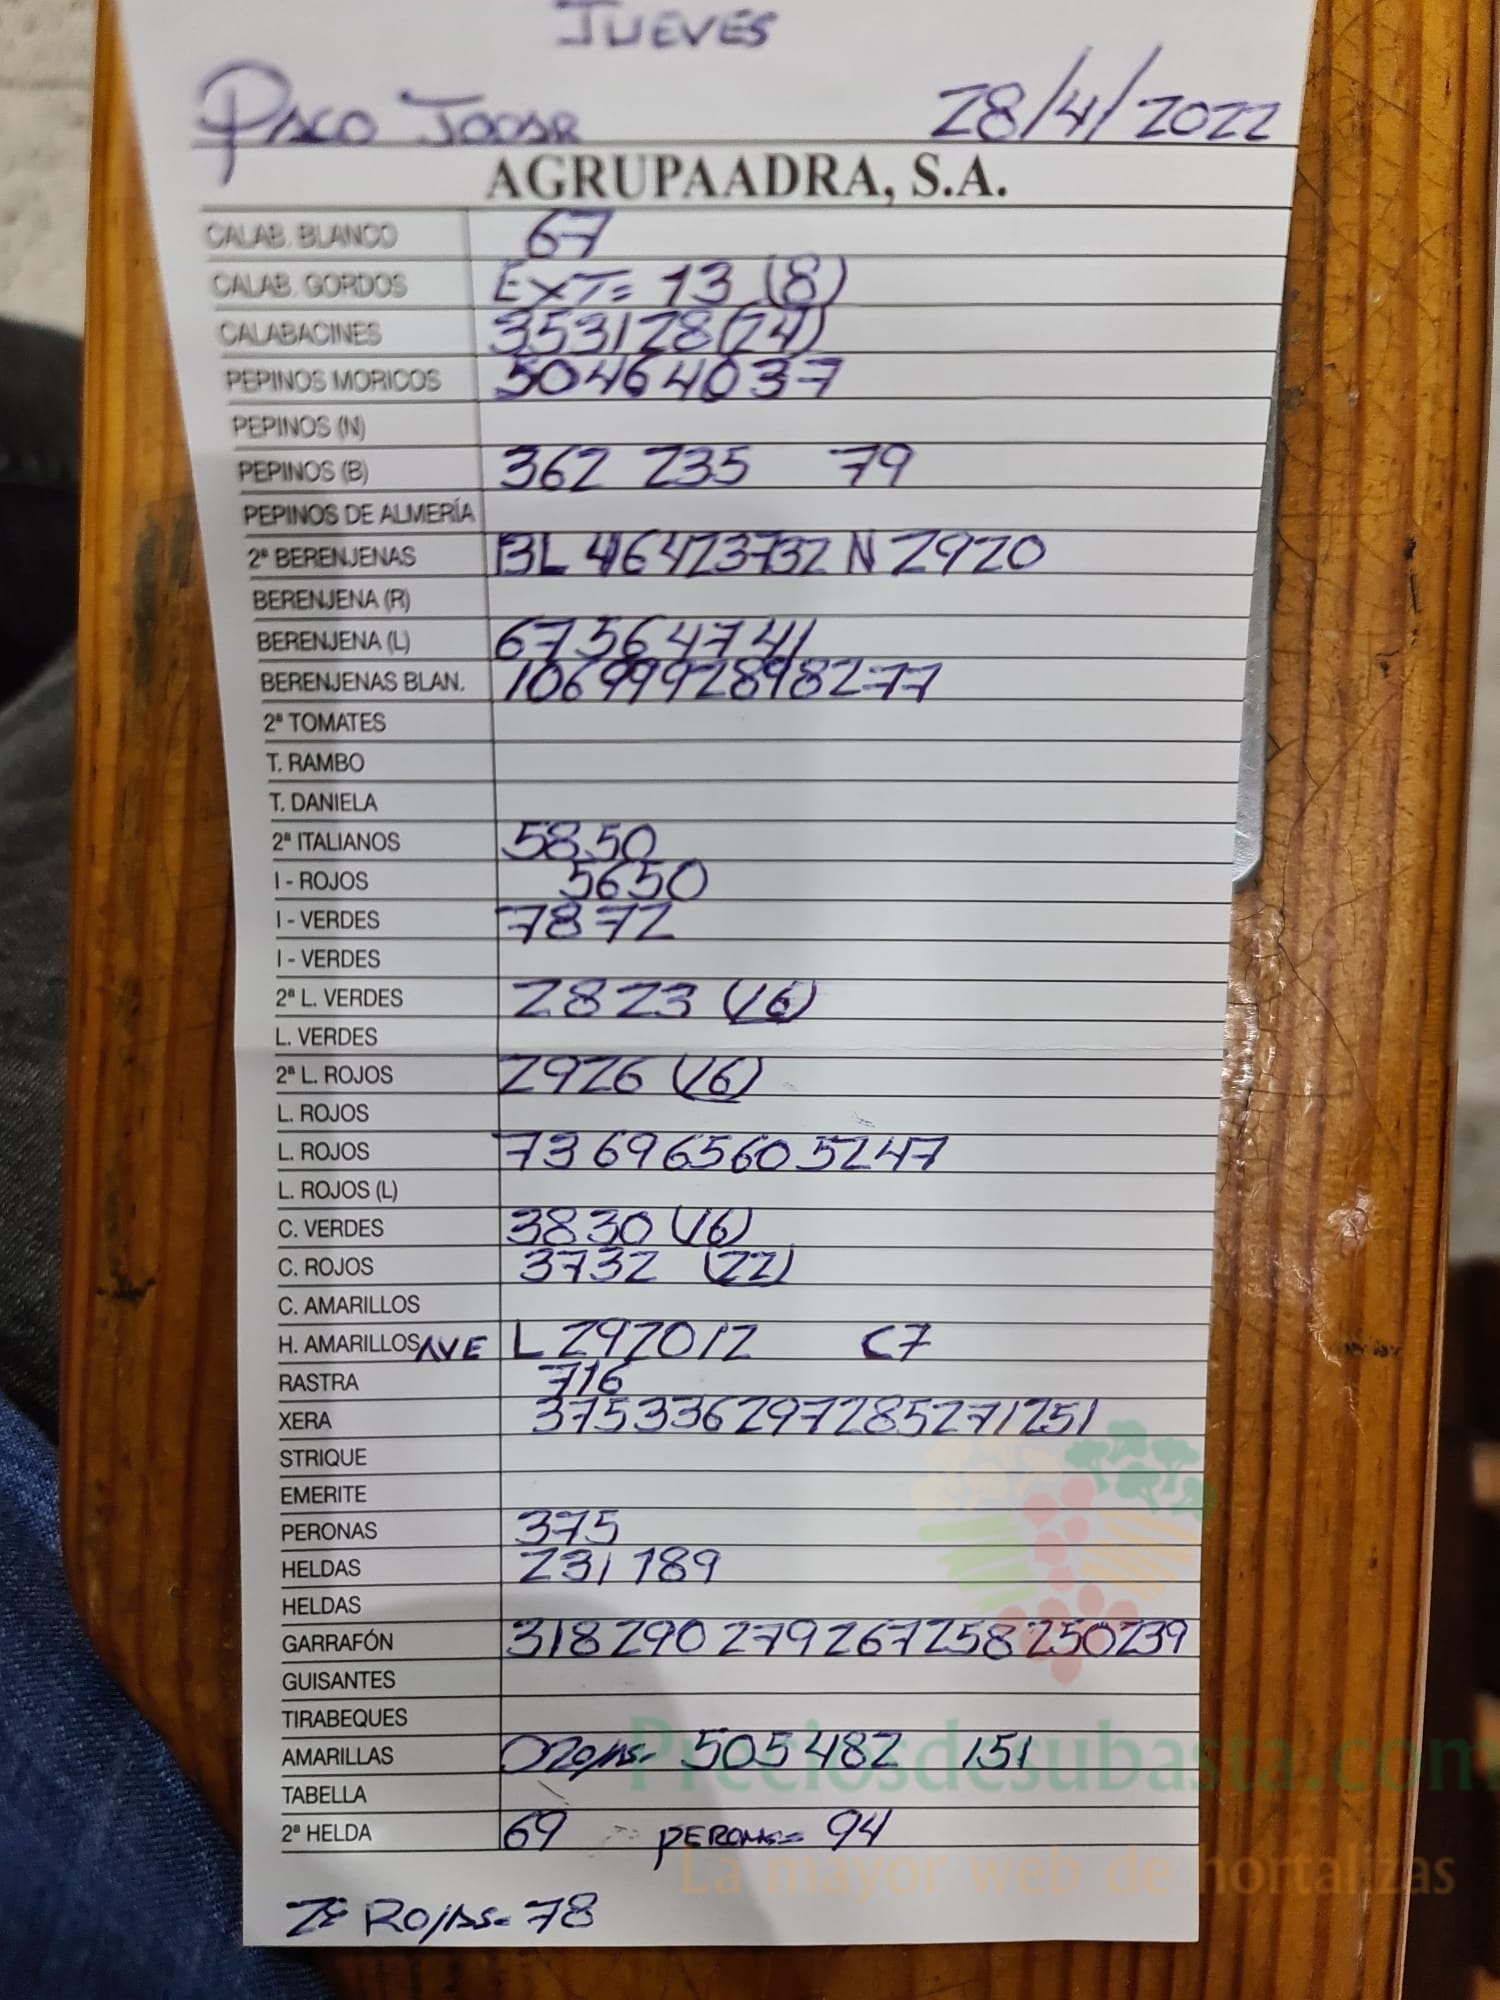 JUEVES
PACO JODAR 28/4/2022
AGRUPAADRA, S.A.
CALAB. BLANCO 67
CALAB. GORDOS EXT= 13 (8)
CALABACINES 353128(24)
PEPINOS MORICOS 50464037
PEPINOS (N)
PEPINOS (B) 362 235 79
PEPINOS DE ALMERÍA
2ª BERENJENAS BL 46423732 N 2920
BERENJENA (R)
BERENJENA (L) 67564741
BERENJENAS BLAN. 1069992898277
2ª TOMATES
T. RAMBO
T. DANIELA
2ª ITALIANOS 5850
I - ROJOS 5650
I - VERDES 7872
I - VERDES
2ª L. VERDES 2823 (16)
L. VERDES
2ª L. ROJOS 2926 (16)
L. ROJOS
L. ROJOS 736965605247
L. ROJOS (L)
C. VERDES 3830 (16)
C. ROJOS 3732 (22)
C. AMARILLOS
H. AMARILLOS AVE L 292012 C7
RASTRA 716
XERA 375336297285271251
STRIQUE
EMERITE
PERONAS 375
HELDAS 231 189
HELDAS
GARRAFÓN 318290279267258250239
GUISANTES
TIRABEQUES
AMARILLAS 505482 151
TABELLA
2ª HELDA 69 PERONAS= 94
2ª ROJAS= 78
Preciosdesubasta.com
La mayor web de hortalizas